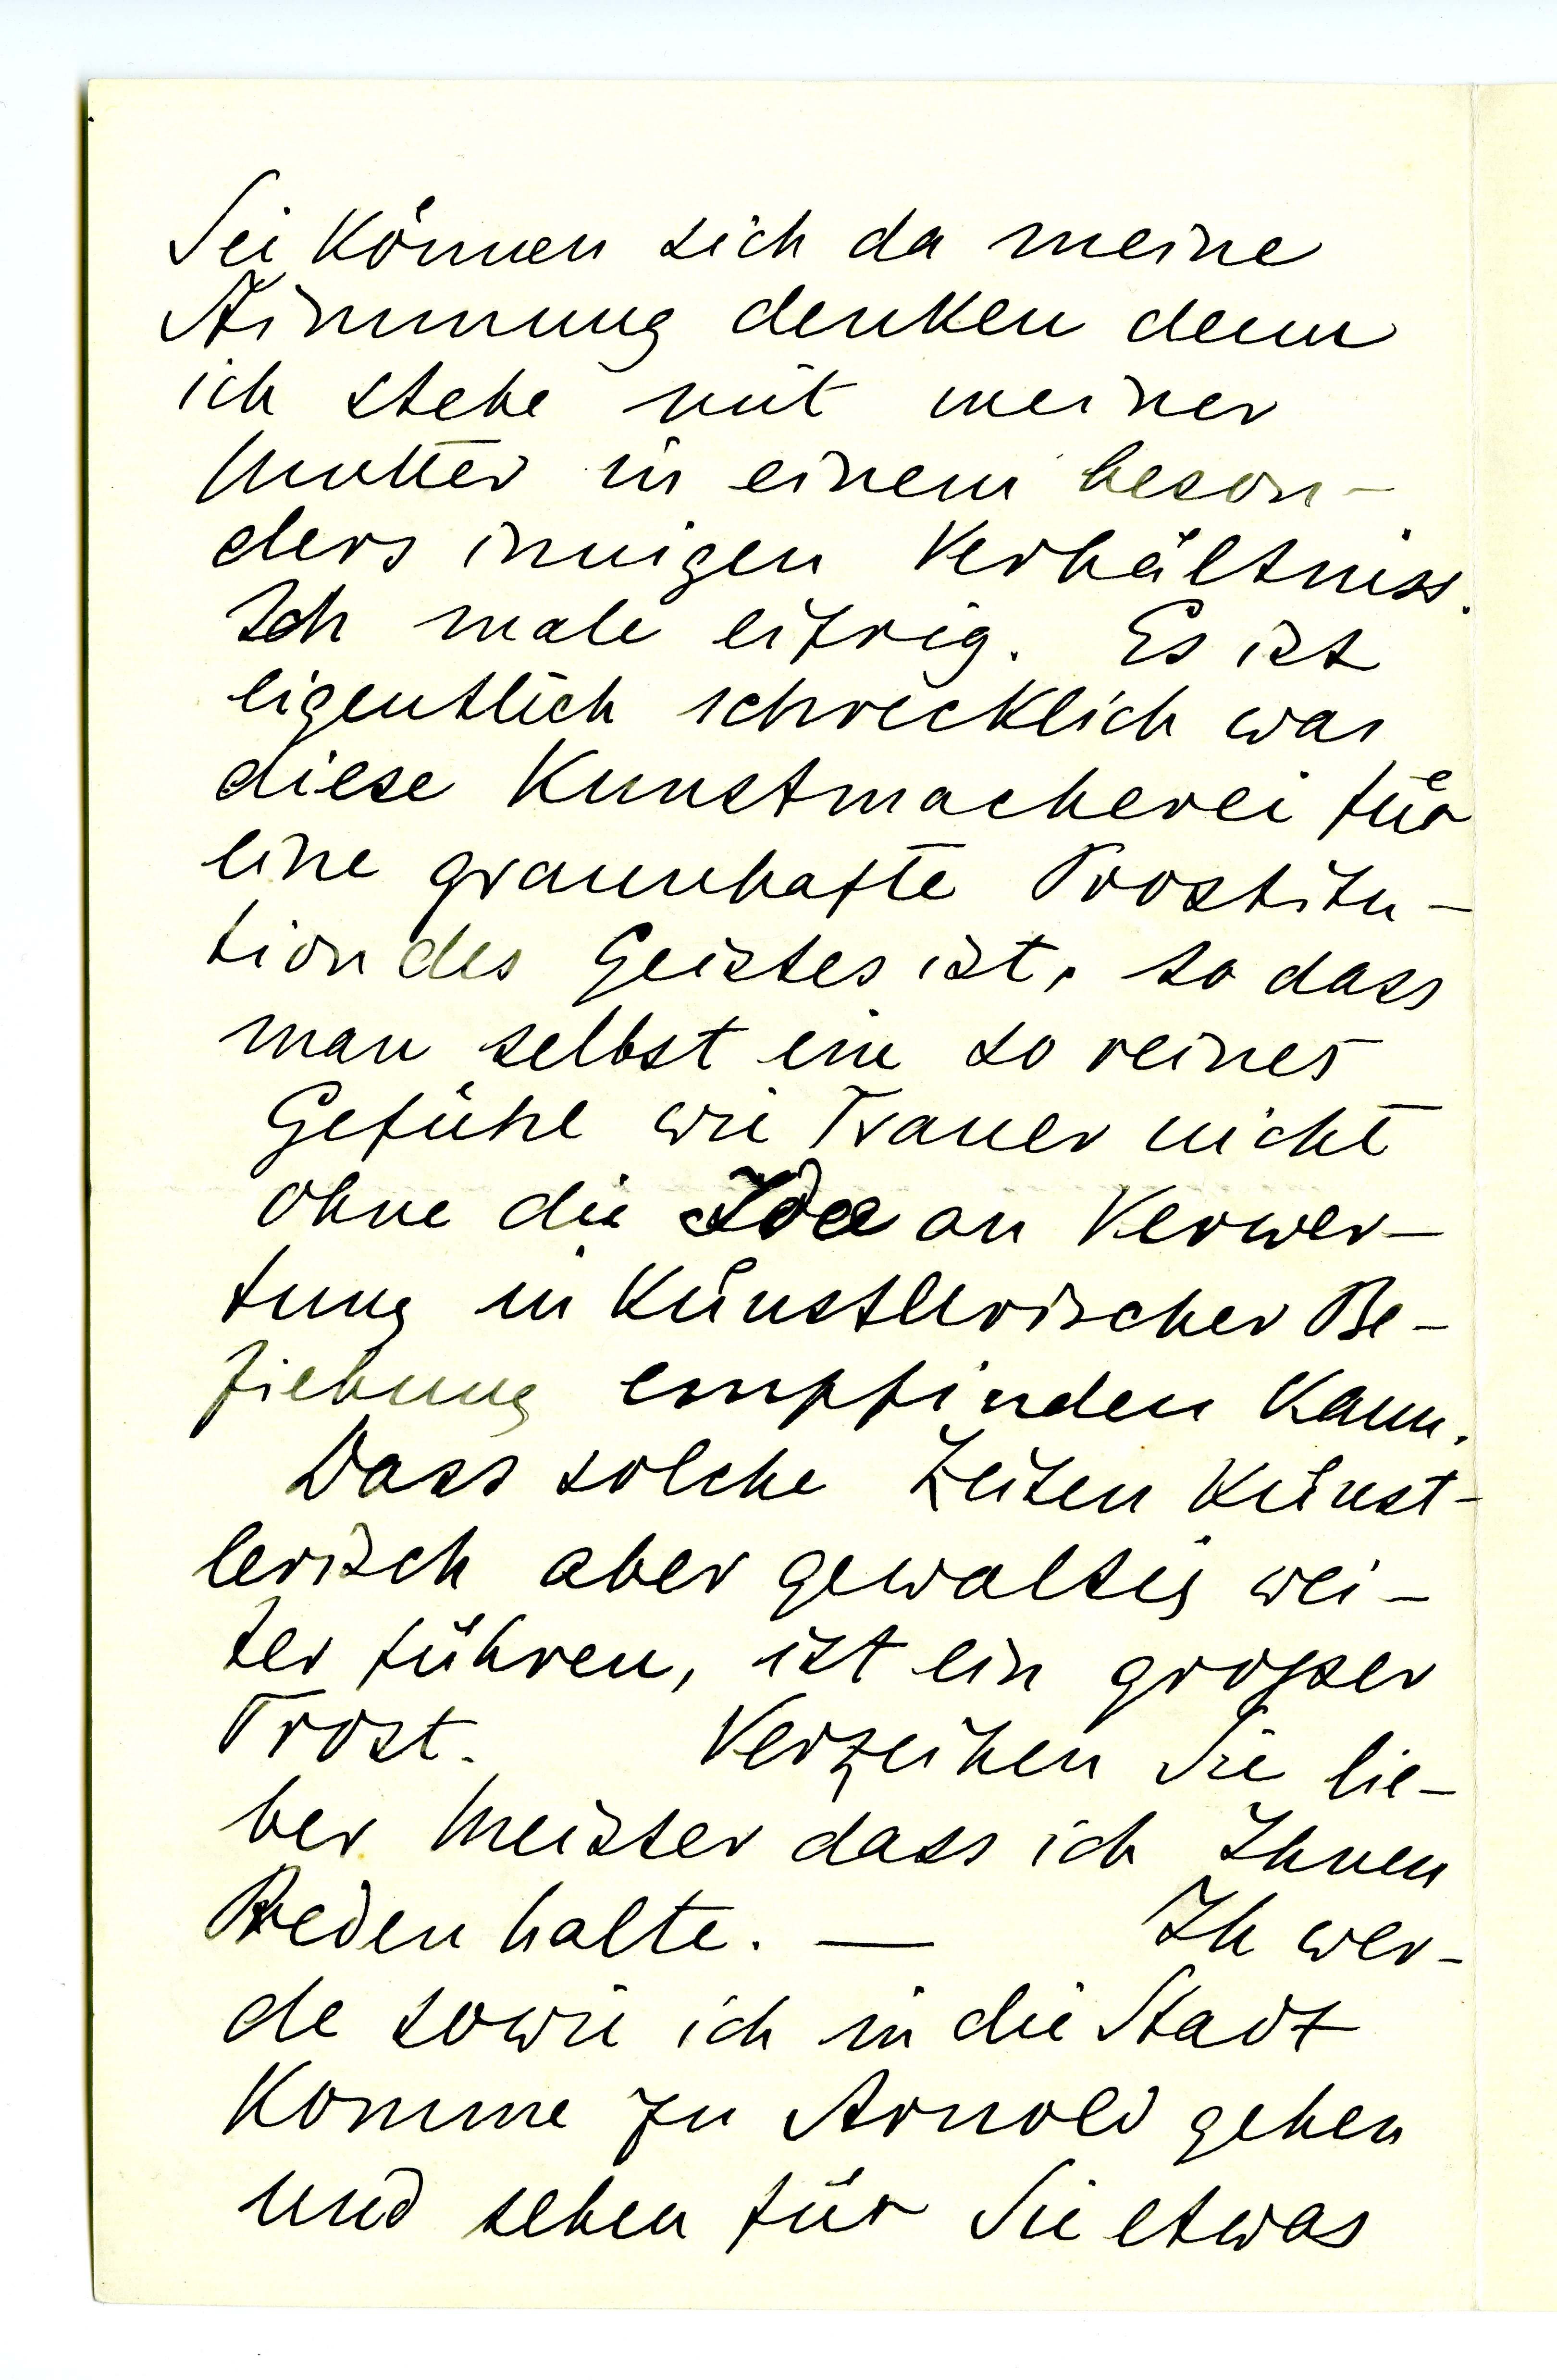 Sei können sich da meine
Stimmung denken denn
ich stehe mit meiner
Mutter in einem beson-
ders innigen Verhältniss.
Ich male eifrig. Es ist
eigentlich schrecklich was
diese Kunstmacherei für
eine graunhafte Prostitu-
tion des Geistes ist, so dass
man selbst ein so reines
Gefühl wie Trauer nicht
ohne die Idee an Verwer-
tung in künstlerischer Be-
ziehung empfinden kann.
Dass solche Zeiten künst-
lerisch aber gewaltig wei-
ter führen, ist ein großer
Trost. Verzeihen Sie lie-
ber Meister dass ich Ihnen
Reden halte. — Ih wer-
de sowie ich in die Stadt
komme zu Arnold gehen
und sehen für Sie etwas